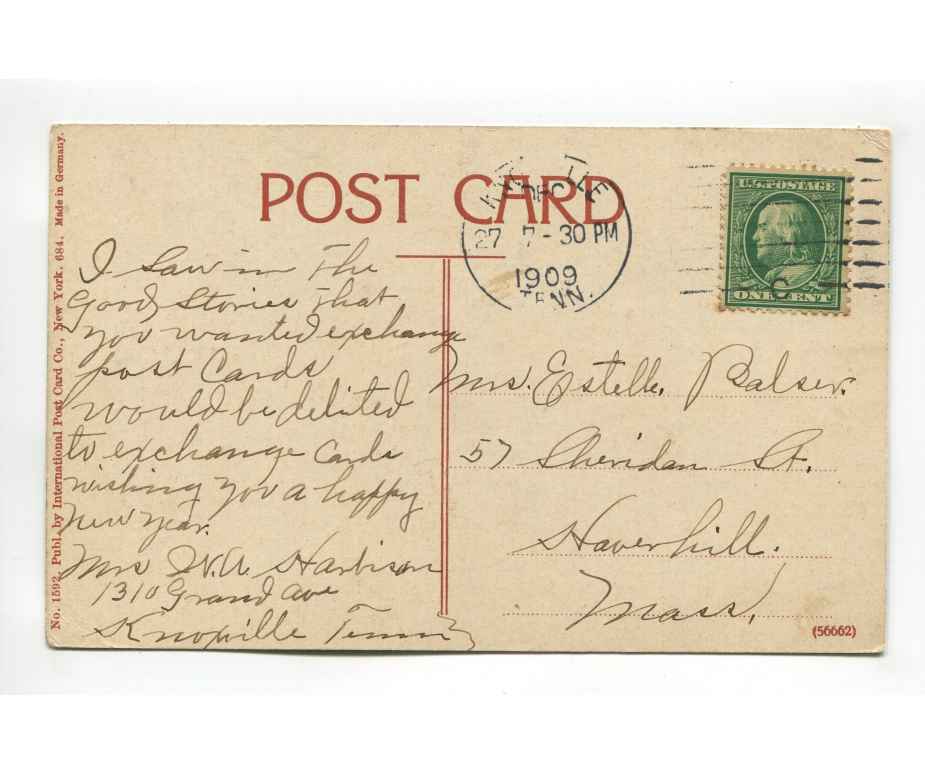 POST CARD
KNOXVILLE
DEC
27 7-30 PM
1909
TENN.
U.S. POSTAGE
ONE CENT
C
I Saw in The
Good Stories That
you wanted exchange
post Cards
would be delited
to exchange Cards
wishing you a happy
new year.
Mrs W.A. Harbison
1310 Grand Ave
Knoxville Tenn
Mrs. Estelle. Balser.
57 Sheridan St.
Haverhill.
Mass.
(56662)
No. 1592. Publ. by International Post Card Co., New York. 684. Made in Germany.